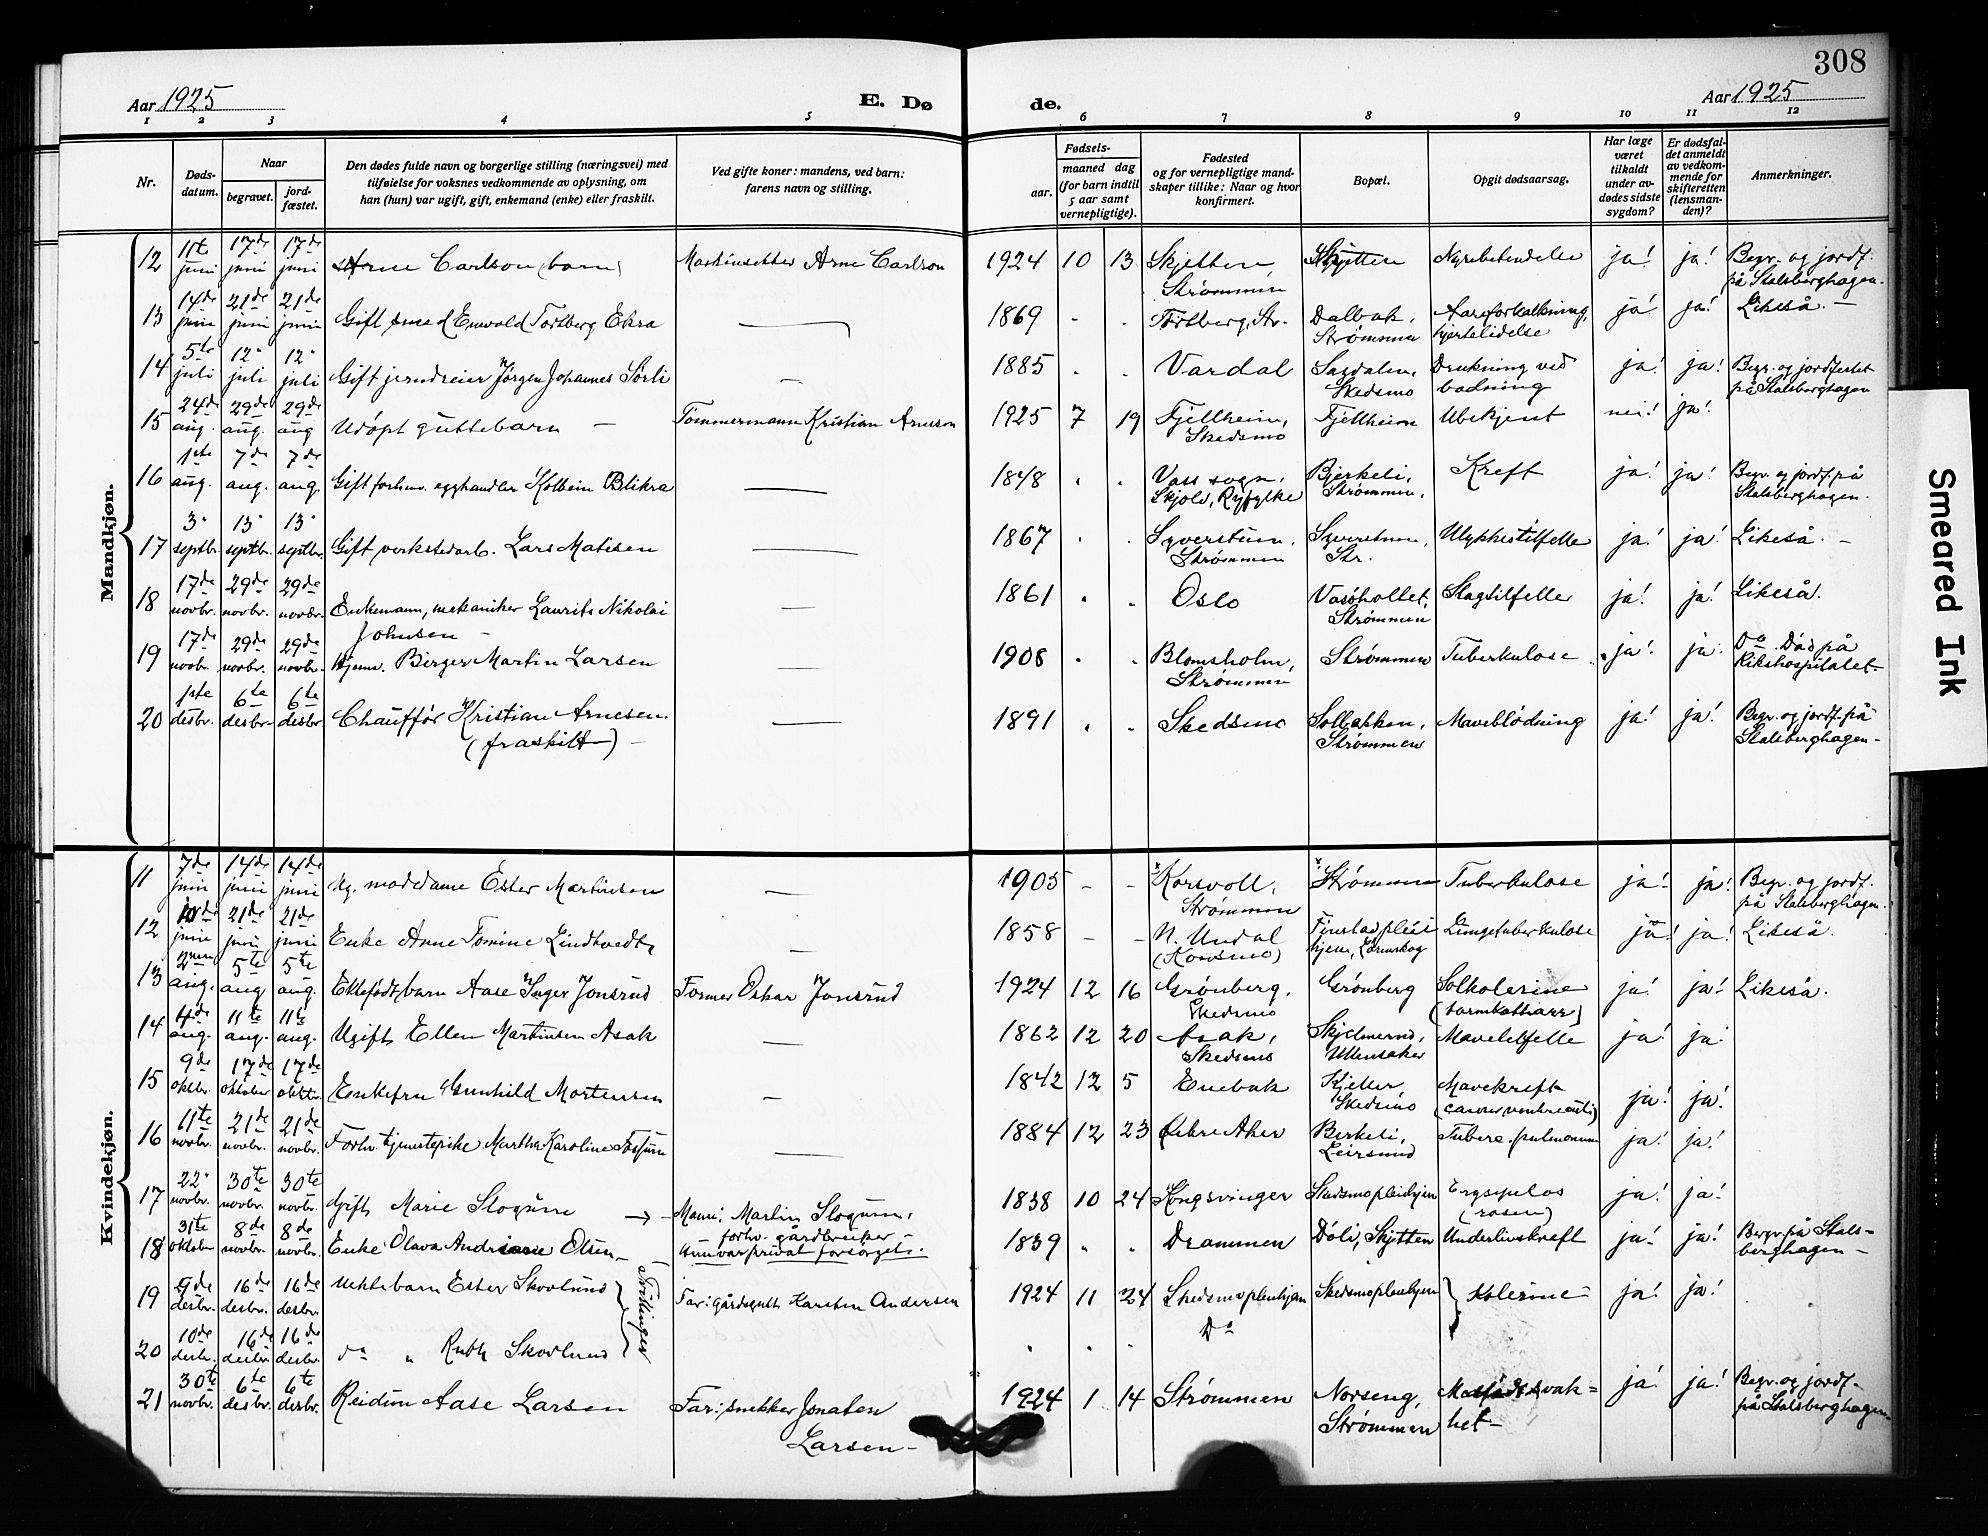 308
Aar 1925
E. Dø
de.
Aar 1925
1 2 3 4 5 6 7 8 9 10 11 12
Nr.
Døds-
datum.
Naar
begravet.
jord-
fæstet.
Den dødes fulde navn og borgerlige stilling (næringsvei) med
tilføielse for voksnes vedkommende av oplysning, om
han (hun) var ugift, gift, enkemand (enke) eller fraskilt.
Ved gifte koner: mandens, ved barn:
farens navn og stilling.
Fødsels-
aar.
maaned dag
(for barn indtil
5 aar samt
vernepligtige).
Fødested
og for vernepligtige mand-
skaper tillike: Naar og hvor
konfirmert.
Bopæl.
Opgit dødsaarsag.
Har læge
været
tilkaldt
under av-
dødes sidste
sygdom?
Er dødsfal-
det anmeldt
av vedkom-
mende for
skifteretten
(lensman-
den)?
Anmerkninger.
Mandkjøn.
12 11te juni 17de juni 17de juni Arne Carlson (barn) Maskinsetter Arne Carlson 1924 10 13 Skjetten, Strømmen Skjetten Nyrebetendelse ja! ja! Begr. og jordf. på Stalsberghagen.
13 14de juni 21de juni 21de juni Gift smed Enwold Torsberg Ekra — 1869 Torsberg, Str. Dalbak, Strømmen Aareforkalkning, hjertelidelse ja! ja! Likeså. —
14 5te juli 12 juli 12 juli Gift jerndreier Jørgen Johannes Sörli — 1885 Vardal Sagdalen, Skedsmo Drukning ved badning ja! ja! Begr. og jordfestet på Stalsberghagen
15 24de aug. 29de aug. 29de aug Udöpt guttebarn — Tømmermann Kristian Arneson 1925 7 19 Fjellheim, Skedsmo Fjellheim Ubekjent nei! ja!
16 1ste aug. 7de aug. 7de aug. Gift forhenv. egghandler Kolbein Blikra — 1848 Vass sogn, Skjold, Ryfylke Bjerkeli, Strømmen, Kreft ja! ja! Begr. og jordf. på Stalsberghagen.
17 3. septbr. 13. septbr. 13. septbr. Gift verkstedarb. Lars Matesen — 1867 Syverstuen, Strømmen Syverstuen, Str. Ulykkestilfelle ja! ja! Likeså. —
18 17de novbr. 29de novbr. 29de novbr. Enkemann, mekaniker Laurits Nikolai Johnsen — 1861 Oslo Vasshollet, Strømmen Slagtilfelle ja! ja! Likeså.
19 17de novbr. 29de novbr. 29de novbr. Birger Martin Larsen — 1908 Blomsholm, Strømmen Strømmen Tuberkulose ja! ja. Do. Död på Rikshospitalet—
20 1ste desbr. 6te desbr. 6te desbr Chauffør Kristian Arnesen. (fraskilt) — 1891 Skedsmo Sollbakken, Strømmen Maveblödning ja! ja! Begr. og jordf. på Stalsberghagen—
Kvindekjøn.
11 7de juni 14de juni 14de juni Ug. motedame Ester Martinsen — 1905 Korsvoll, Strømmen Strømmen Tuberkulose ja! ja! Begr. og jordf. på Stalsberghagen.
12 juni 21de juni 21de juni Enke Anne Tomine Lindtvedt — 1858 N. Undal (Konsmo) Lørenskog Lungetuberkulose ja! ja! Likeså.
13 2nen aug. 5te aug 5te aug. Ektefödt barn Aase Inger Jonsrud Former Oskar Jonsrud 1924 12 16 Grönberg, Skedsmo Grönberg Solkolerine (tarmkattharr) ja! ja! Likeså.
14 4de aug. 11te aug. 11te aug. Ugift Ellen Martinsen Asak — 1862 12 20 Asak, Skedsmo Skjelmerud, Ullensaker ja! ja!
15 9de oktbr. 17de oktober 17de oktbr. Enkefru Gunhild Mortensen — 1842 12 5 Enebak Kjeller Skedsmo Mavekreft ja! ja!
16 11te novbr. 21de novbr. 21de novbr. Forhv. tjenestepike Martha Karoline Fossum — 1884 12 23 Østre Aker Berkeli, Leirsund Tuberc. pulmonum ja! ja!
17 22. novbr. 30te novbr. 30te novbr. Gift Marie Slogum → Mann: Martin Slogum, forhv. gårdbruker — Hun var privat forsørget. 1838 10 24 Kongsvinger Skedsmopleiehjem Erysipelas (rosen) ja! ja!
18 31te oktober 8de novbr. 8de novbr. Enke Olava Andrine Olsen — 1839 Drammen Döli, Skjetten Underlivskreft ja! ja! Begr. på Stalsberghagen —
19 9de desbr. 16de desbr. 16de desbr. Uektebarn Ester Skovlund Tvillinger Far: gårdsgutt Karsten Andersen 1924 11 24 Skedsmopleiehjem Skedsmopleiehjem Kolerine ja! ja!
20 10de desbr. 16de desbr. 16de desbr. do " Ruth Skovlund Do
21 30te novbr. 6te desbr. 6te desbr. Reidun Aase Larsen Far: snekker Jonatan Larsen — 1924 1 14 Strømmen Norseng, Strømmen Medfödt svakhet — ja! ja! Begr. og jordf. på Stalsberghagen
Smeared Ink